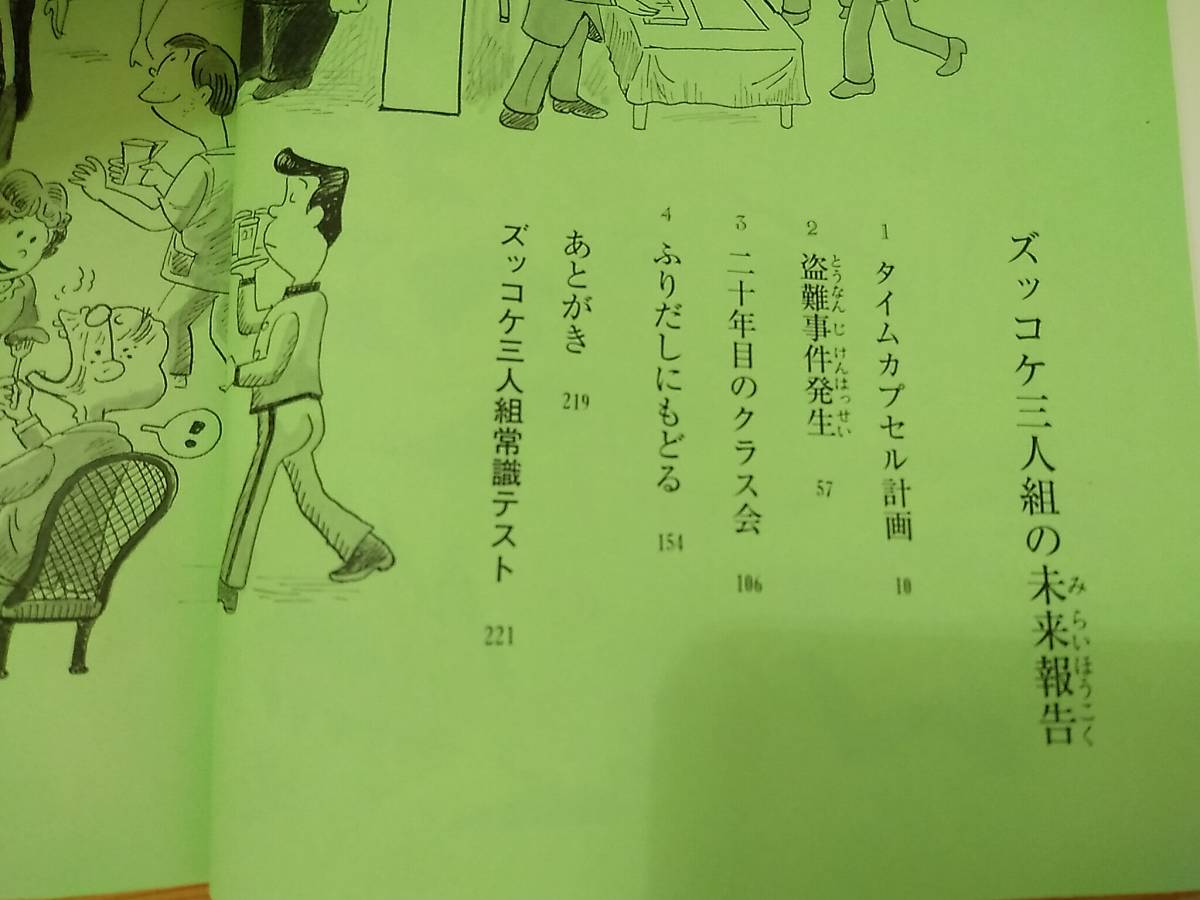 ズッコケ三人組の未来報告
みらいほうこく
1 タイムカプセル計画 10
2 盗難事件発生 57
とうなんじけんはっせい
3 二十年目のクラス会 106
4 ふりだしにもどる 154
あとがき 219
ズッコケ三人組常識テスト 221